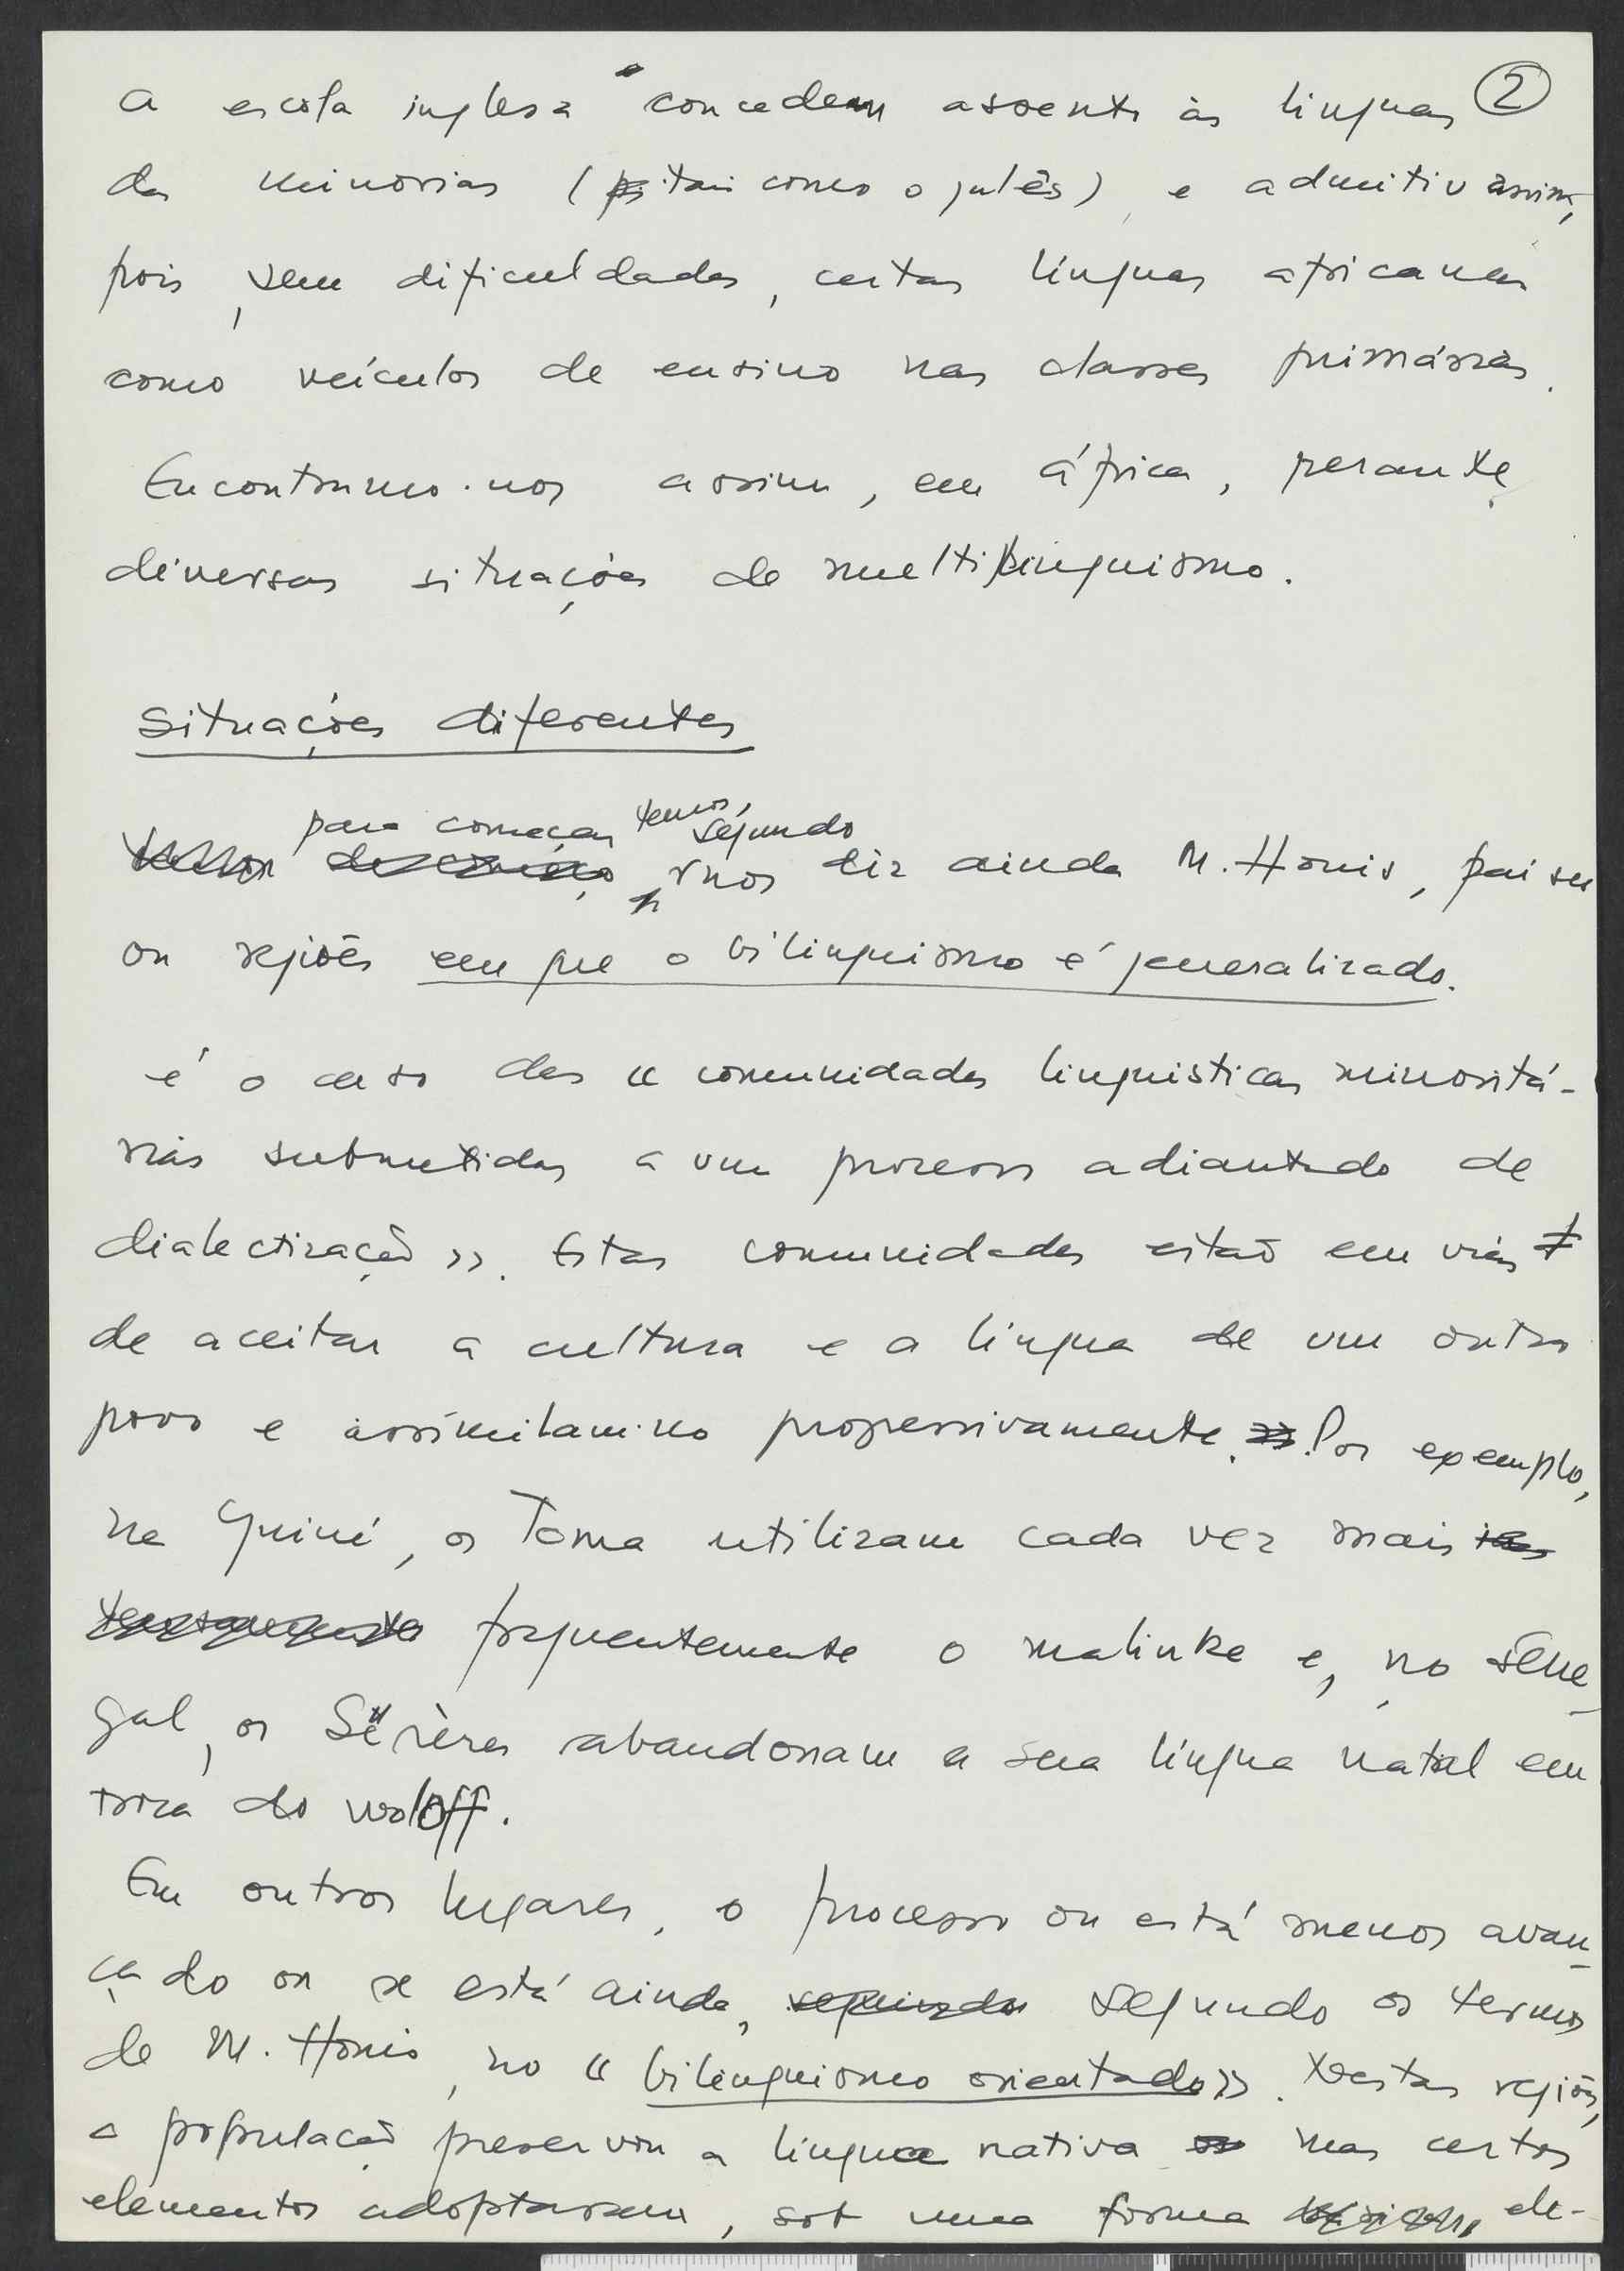 A escola inglesa concedeu assento às linguas ②
das minorias (tais como o galês), e admitiu assim,
pois, sem dificuldades, certas línguas africanas
como veículos de ensino nas classes primárias.
Encontramo-nos assim, em África, perante
diversas situações de multilinguismo.
Situações diferentes
para começar temos, segundo
nos diz ainda M. Houis, países
ou regiões em que o bilinguismo é generalizado.
é o caso das « comunidades linguisticas minoritá-
rias submetidas a um processo adiantado de
dialectização ». Estas comunidades estão em vias
de aceitar a cultura e a língua de um outro
povo e assimilam-no progressivamente. Por exemplo,
na Guiné, os Toma utilizam cada vez mais
frequentemente o malinke e, no Sene-
gal, os Sérères abandonam a sua língua natal em
troca do woloff.
Em outros lugares, o processo ou está menos avan-
çado ou se está ainda, segundo os termos
de M. Houis, no « bilinguismo orientado ». Nestas regiões,
a população preservou a lingua nativa mas certos
elementos adoptaram, sob uma forma ele-